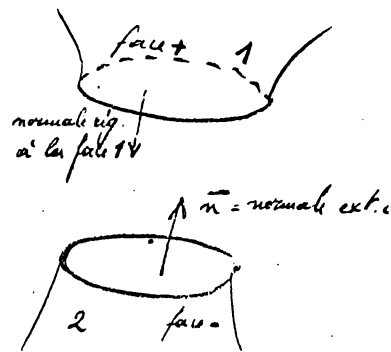 face + 1
normale
à la face 1
n = normale ext.
2 face -